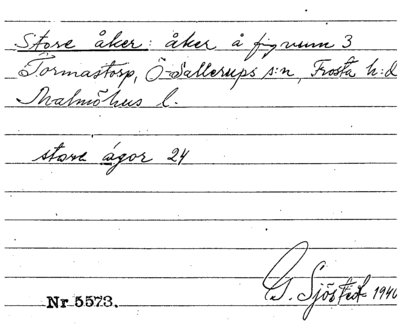 Store åker: åker å fig num 3
Tormastorp, Ö Sallerups s:n, Frosta h:d
Malmöhus l.
store ágor 24
G. Sjöstedt 1946
Nr 5573.